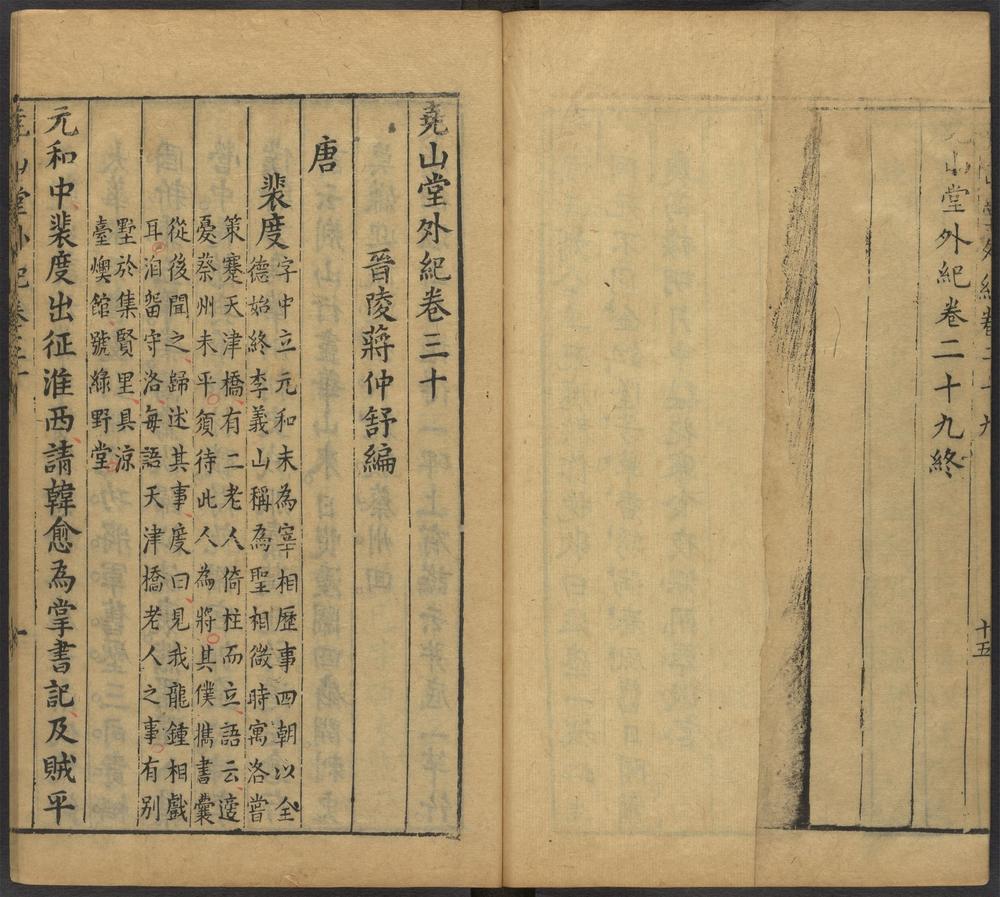 山堂外紀卷二十九
十五
山堂外紀卷二十九終
堯山堂外紀卷三十
晉陵蔣仲舒編
唐
裴度
字中立元和末為宰相歷事四朝以全
德始終李義山稱為聖相微時寓洛嘗
策蹇天津橋有二老人倚柱而立語云適
憂蔡州未平須待此人為將其僕攜書囊
從後聞之歸述其事度曰見我龍鍾相戲
耳洎留守洛每語天津橋老人之事有別
墅於集賢里具涼
臺燠館號綠野堂
元和中裴度出征淮西請韓愈為掌書記及賊平
堯山堂外紀卷三十